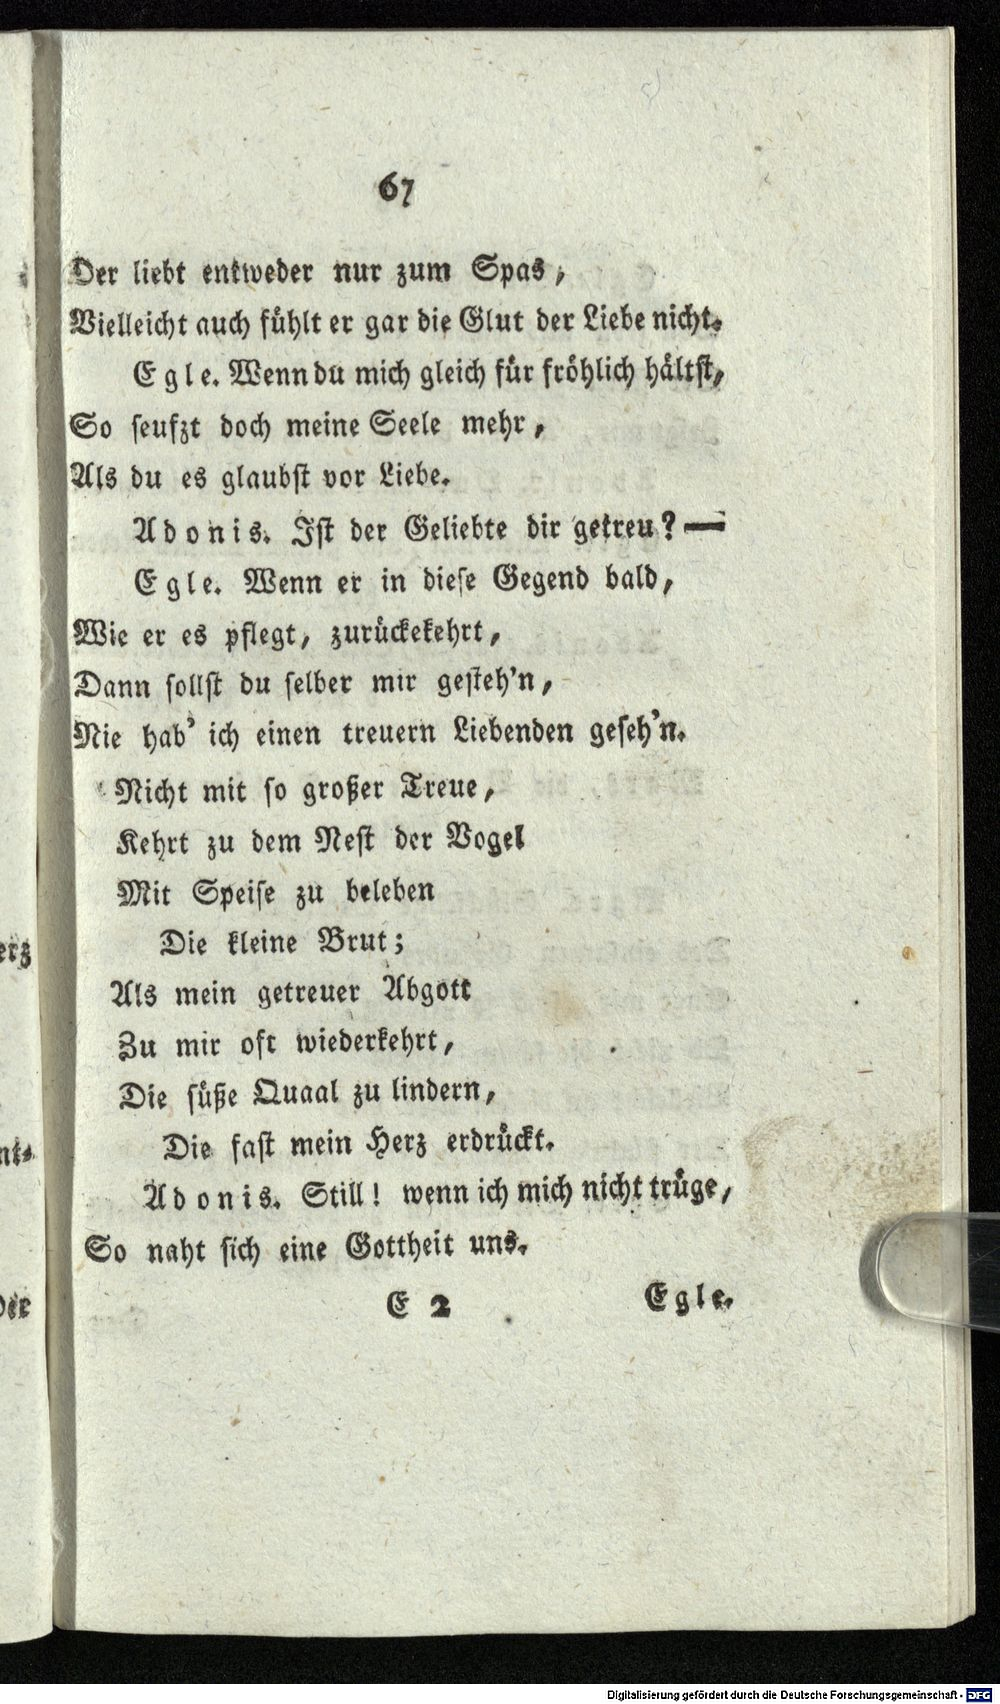 67
Der liebt entweder nur zum Spas,
Vielleicht auch fühlt er gar die Glut der Liebe nicht.
Egle. Wenn du mich gleich für fröhlich hältst,
So seufzt doch meine Seele mehr,
Als du es glaubst vor Liebe.
Adonis. Ist der Geliebte dir getreu? —
Egle. Wenn er in diese Gegend bald,
Wie er es pflegt, zurückekehrt,
Dann sollst du selber mir gesteh'n,
Nie hab' ich einen treuern Liebenden geseh'n.
Nicht mit so großer Treue,
Kehrt zu dem Nest der Vogel
Mit Speise zu beleben
Die kleine Brut;
Als mein getreuer Abgott
Zu mir oft wiederkehrt,
Die süße Quaal zu lindern,
Die fast mein Herz erdrückt.
Adonis. Still! wenn ich mich nicht trüge,
So naht sich eine Gottheit uns.
E 2 Egle.
Digitalisierung gefördert durch die Deutsche Forschungsgemeinschaft - DFG